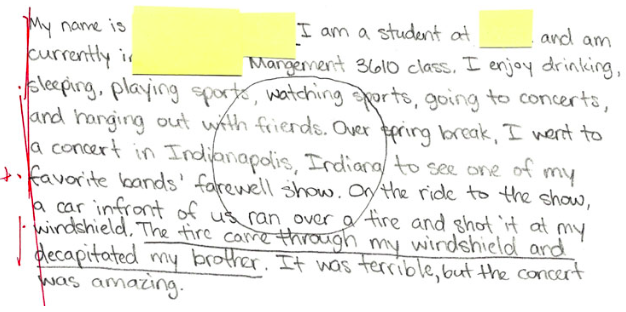 My name is I am a student at and am
currently in Mangement 3610 class. I enjoy drinking,
sleeping, playing sports, watching sports, going to concerts,
and hanging out with friends. Over spring break, I went to
a concert in Indianapolis, Indiana, to see one of my
favorite bands' farewell show. On the ride to the show,
a car infront of us ran over a tire and shot it at my
windshield. The tire came through my windshield and
decapitated my brother. It was terrible, but the concert
was amazing.